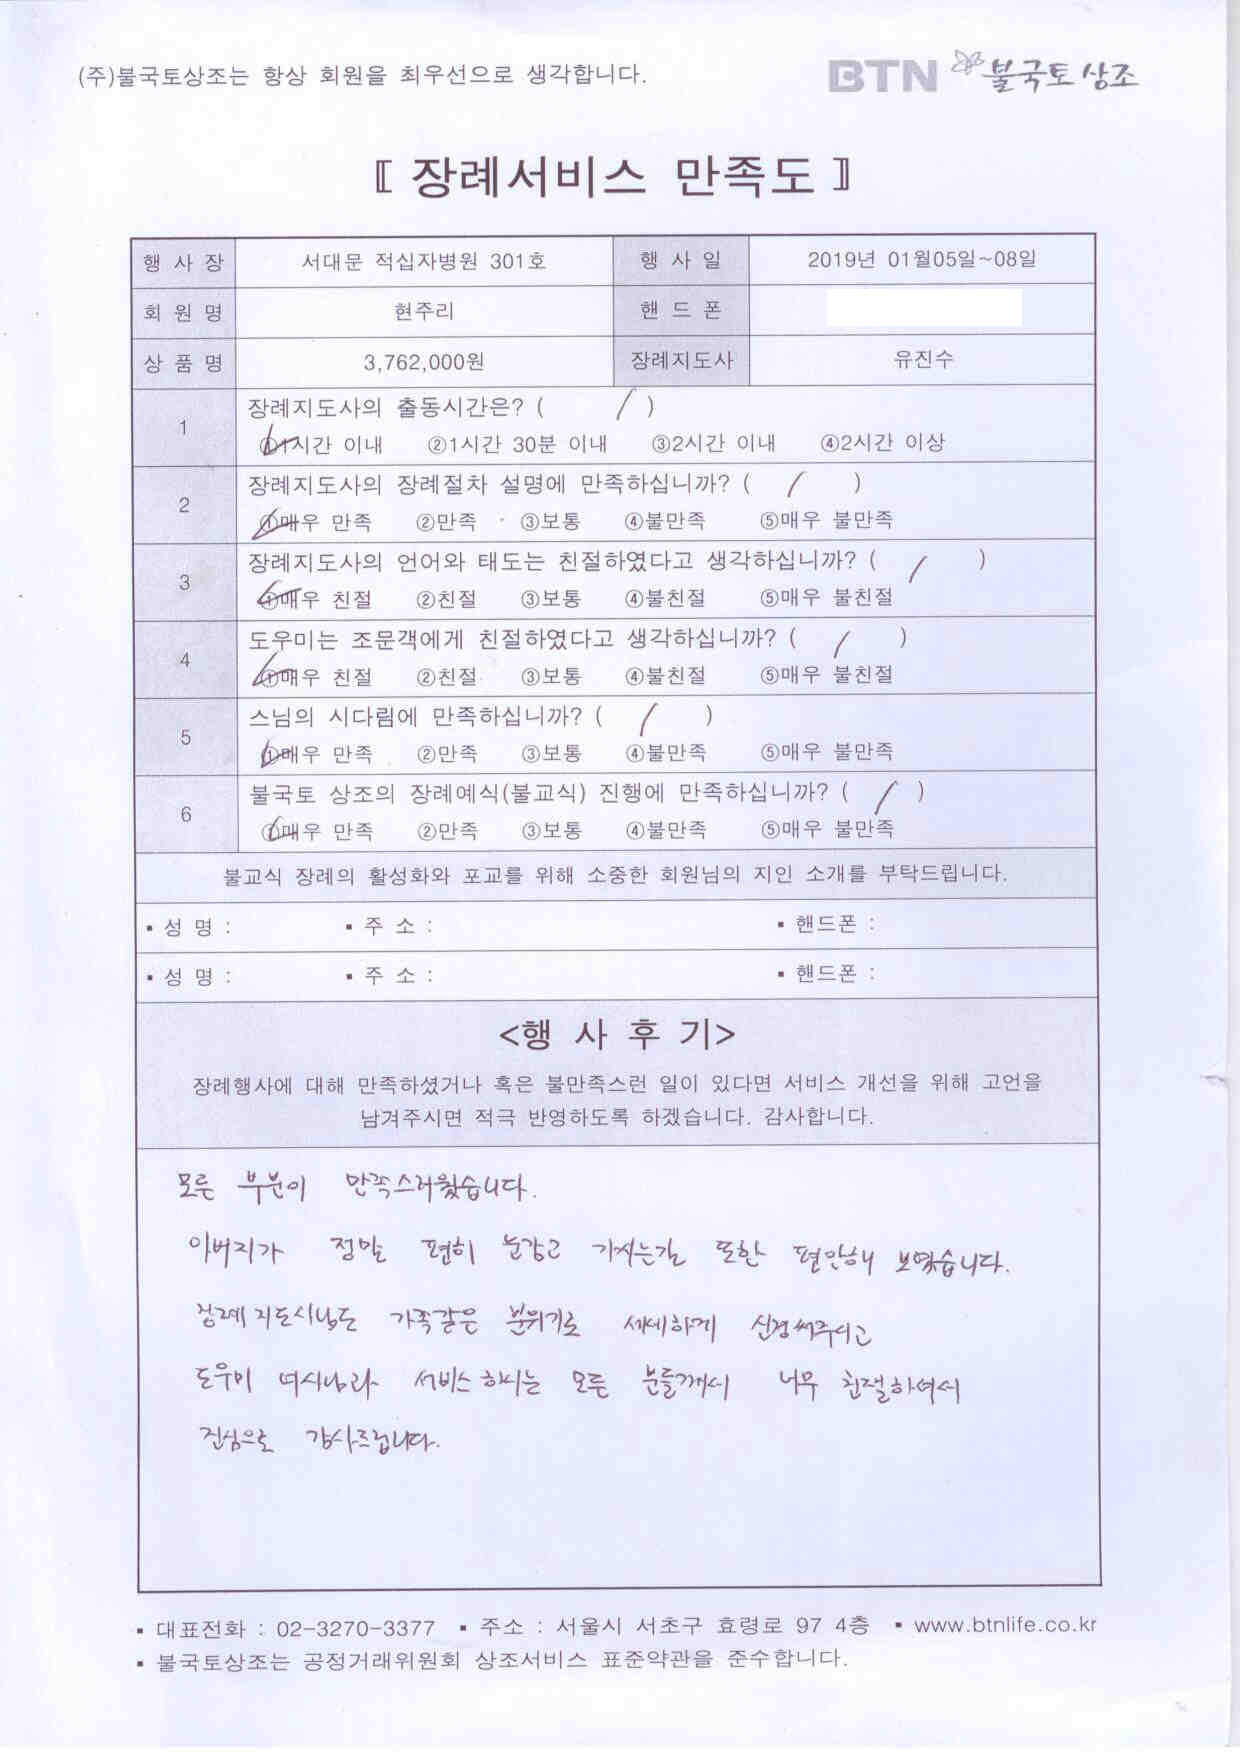 (주)불국토상조는 항상 회원을 최우선으로 생각합니다.
BTN 불국토상조
〖 장례서비스 만족도 〗
행 사 장 서대문 적십자병원 301호 행 사 일 2019년 01월05일~08일
회 원 명 현주리 핸 드 폰
상 품 명 3,762,000원 장례지도사 유진수
1 장례지도사의 출동시간은? ( / )
①1시간 이내 ②1시간 30분 이내 ③2시간 이내 ④2시간 이상
2 장례지도사의 장례절차 설명에 만족하십니까? ( / )
①매우 만족 ②만족 ③보통 ④불만족 ⑤매우 불만족
3 장례지도사의 언어와 태도는 친절하였다고 생각하십니까? ( / )
①매우 친절 ②친절 ③보통 ④불친절 ⑤매우 불친절
4 도우미는 조문객에게 친절하였다고 생각하십니까? ( / )
①매우 친절 ②친절 ③보통 ④불친절 ⑤매우 불친절
5 스님의 시다림에 만족하십니까? ( / )
①매우 만족 ②만족 ③보통 ④불만족 ⑤매우 불만족
6 불국토 상조의 장례예식(불교식) 진행에 만족하십니까? ( / )
①매우 만족 ②만족 ③보통 ④불만족 ⑤매우 불만족
불교식 장례의 활성화와 포교를 위해 소중한 회원님의 지인 소개를 부탁드립니다.
▪ 성 명 : ▪ 주 소 : ▪ 핸드폰 :
▪ 성 명 : ▪ 주 소 : ▪ 핸드폰 :
<행 사 후 기>
장례행사에 대해 만족하셨거나 혹은 불만족스런 일이 있다면 서비스 개선을 위해 고언을
남겨주시면 적극 반영하도록 하겠습니다. 감사합니다.
모든 부분이 만족스러웠습니다.
아버지가 정말 편히 눈감고 가시는길 또한 편안해 보였습니다.
장례지도사님도 가족같은 분위기로 세세하게 신경써주시고
도우미 여사님과 서비스하시는 모든 분들께서 너무 친절하여서
진심으로 감사드립니다.
▪ 대표전화 : 02-3270-3377 ▪ 주소 : 서울시 서초구 효령로 97 4층 ▪ www.btnlife.co.kr
▪ 불국토상조는 공정거래위원회 상조서비스 표준약관을 준수합니다.